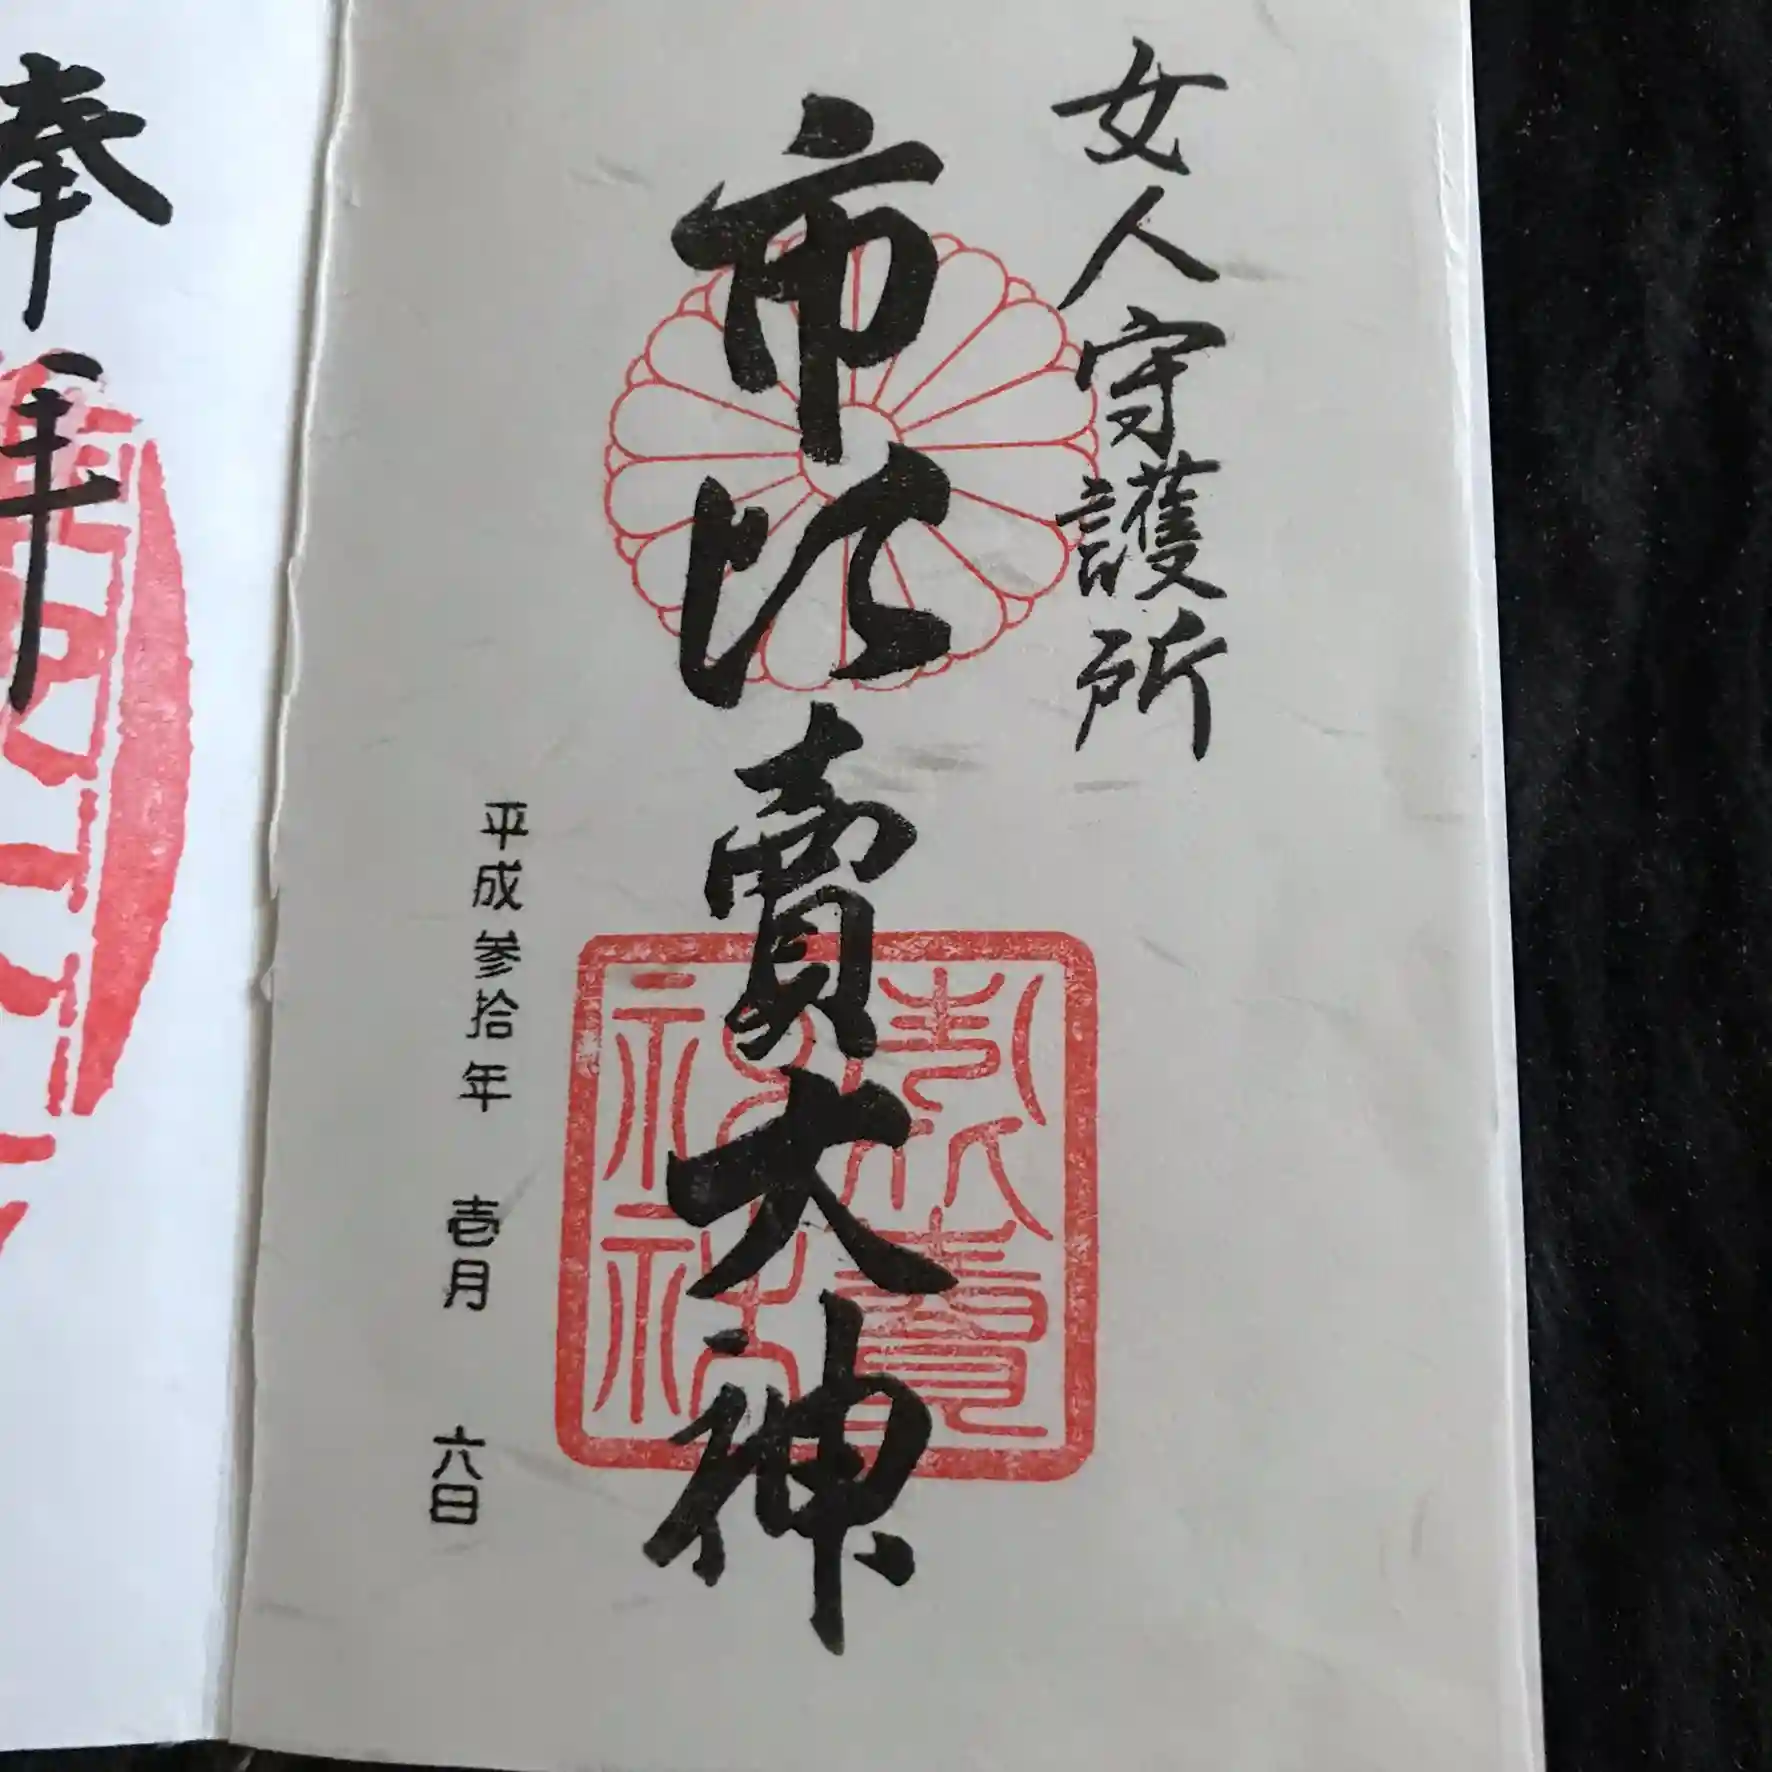 女人守護所
市比賣大神
平成参拾年 壱月 六日
奉拝